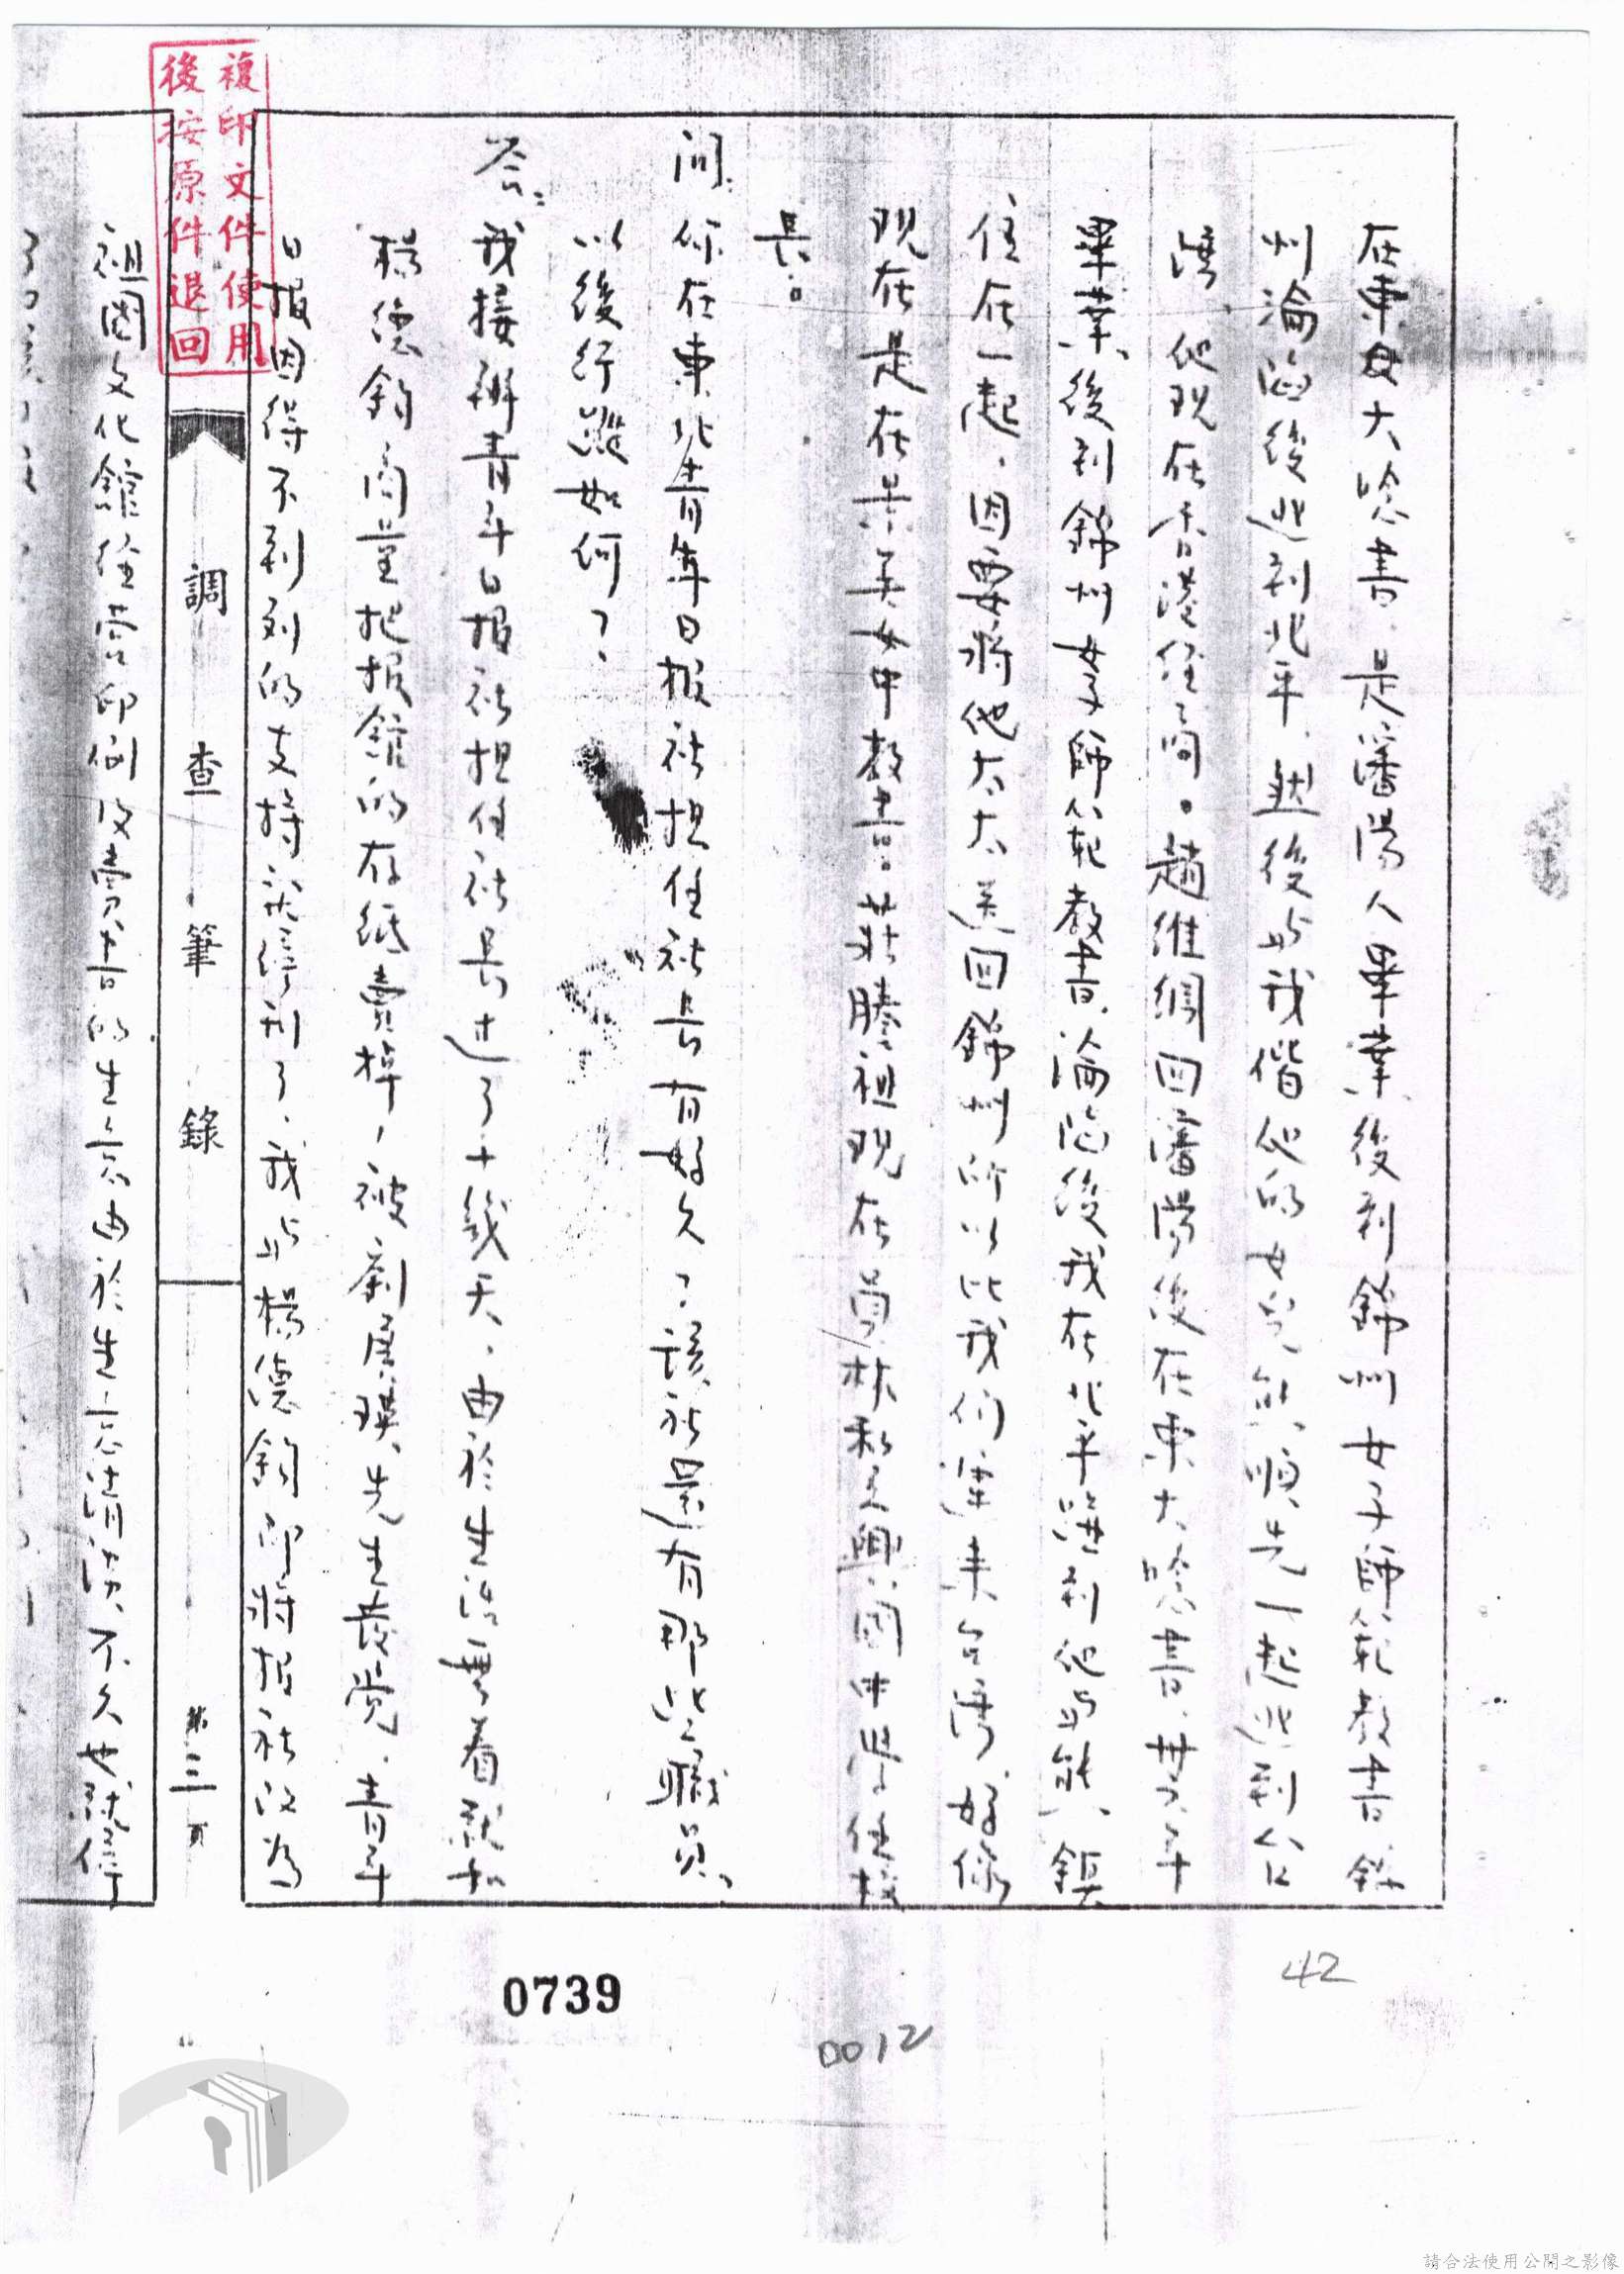 在東大唸書，是瀋陽人畢業後到錦州女子師範教書，錦
州淪陷後逃到北平，然後與我偕他的女兒 順先一起逃到台
灣，他現在香港經商。趙維綱回瀋陽後在東大唸書，廿六年
畢業後到錦州女子師範教書，淪陷後我在北平碰到他與 鎮
住在一起，因要將他太太送回錦州所以比我們遲來台灣，好像
現在是在景美女中教書。莊騰祖現在員林私立興國中學任校
長。
問：你在東北青年日報社担任社長有好久？該社還有那些職員
以後行蹤如何？
答：我接辦青年日報社担任社長过了十幾天，由於生活 着我和
楊德鈞商量把報館的存紙賣掉，被齊 瑛先生發覺，青年
日報因得不到 的支持 停刊了，我与楊德鈞即將报社改為
調查筆錄
第三頁
祖國文化館經營印刷 賣書的生意由於生意清淡不久也就停
複印文件使用
後按原件退回
42
0739
0012
請合法使用公開之影像